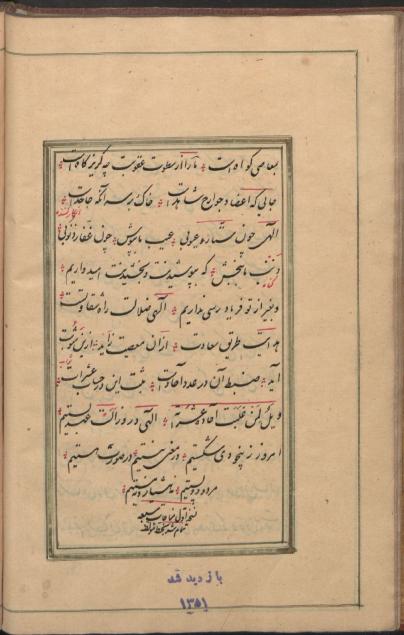 بمعاصی گواه است ما را از سطوت عقوبت چه گریزگاه است
جایی که اعضا و جوارح شاهد است خاک بر سر آنکه جاحد است
الهی چون ستار و عیوبی عیب ما بپوش چون غفار ذنوبی
ذنب ما ببخش که بپوشیدنت و بخشیدنت امیدواریم
و بغیر از تو فریادرسی نداریم الهی ضلالت راه شقاوت است
هدایت طریق سعادت از آن معصیت زاید از این مثوبت
آید ضبط آن در عدد آحاد است ثبت این در حساب عشرات
ویل لمن غلبت آحاده عشراته الهی در روز الست بلی گفتیم
امروز زنجیر شکستیم در معنی نیستیم در صورت هستیم
مرده دو نیستیم نه هشیار نه مستیم
بازدید شد
۱۳۵۱